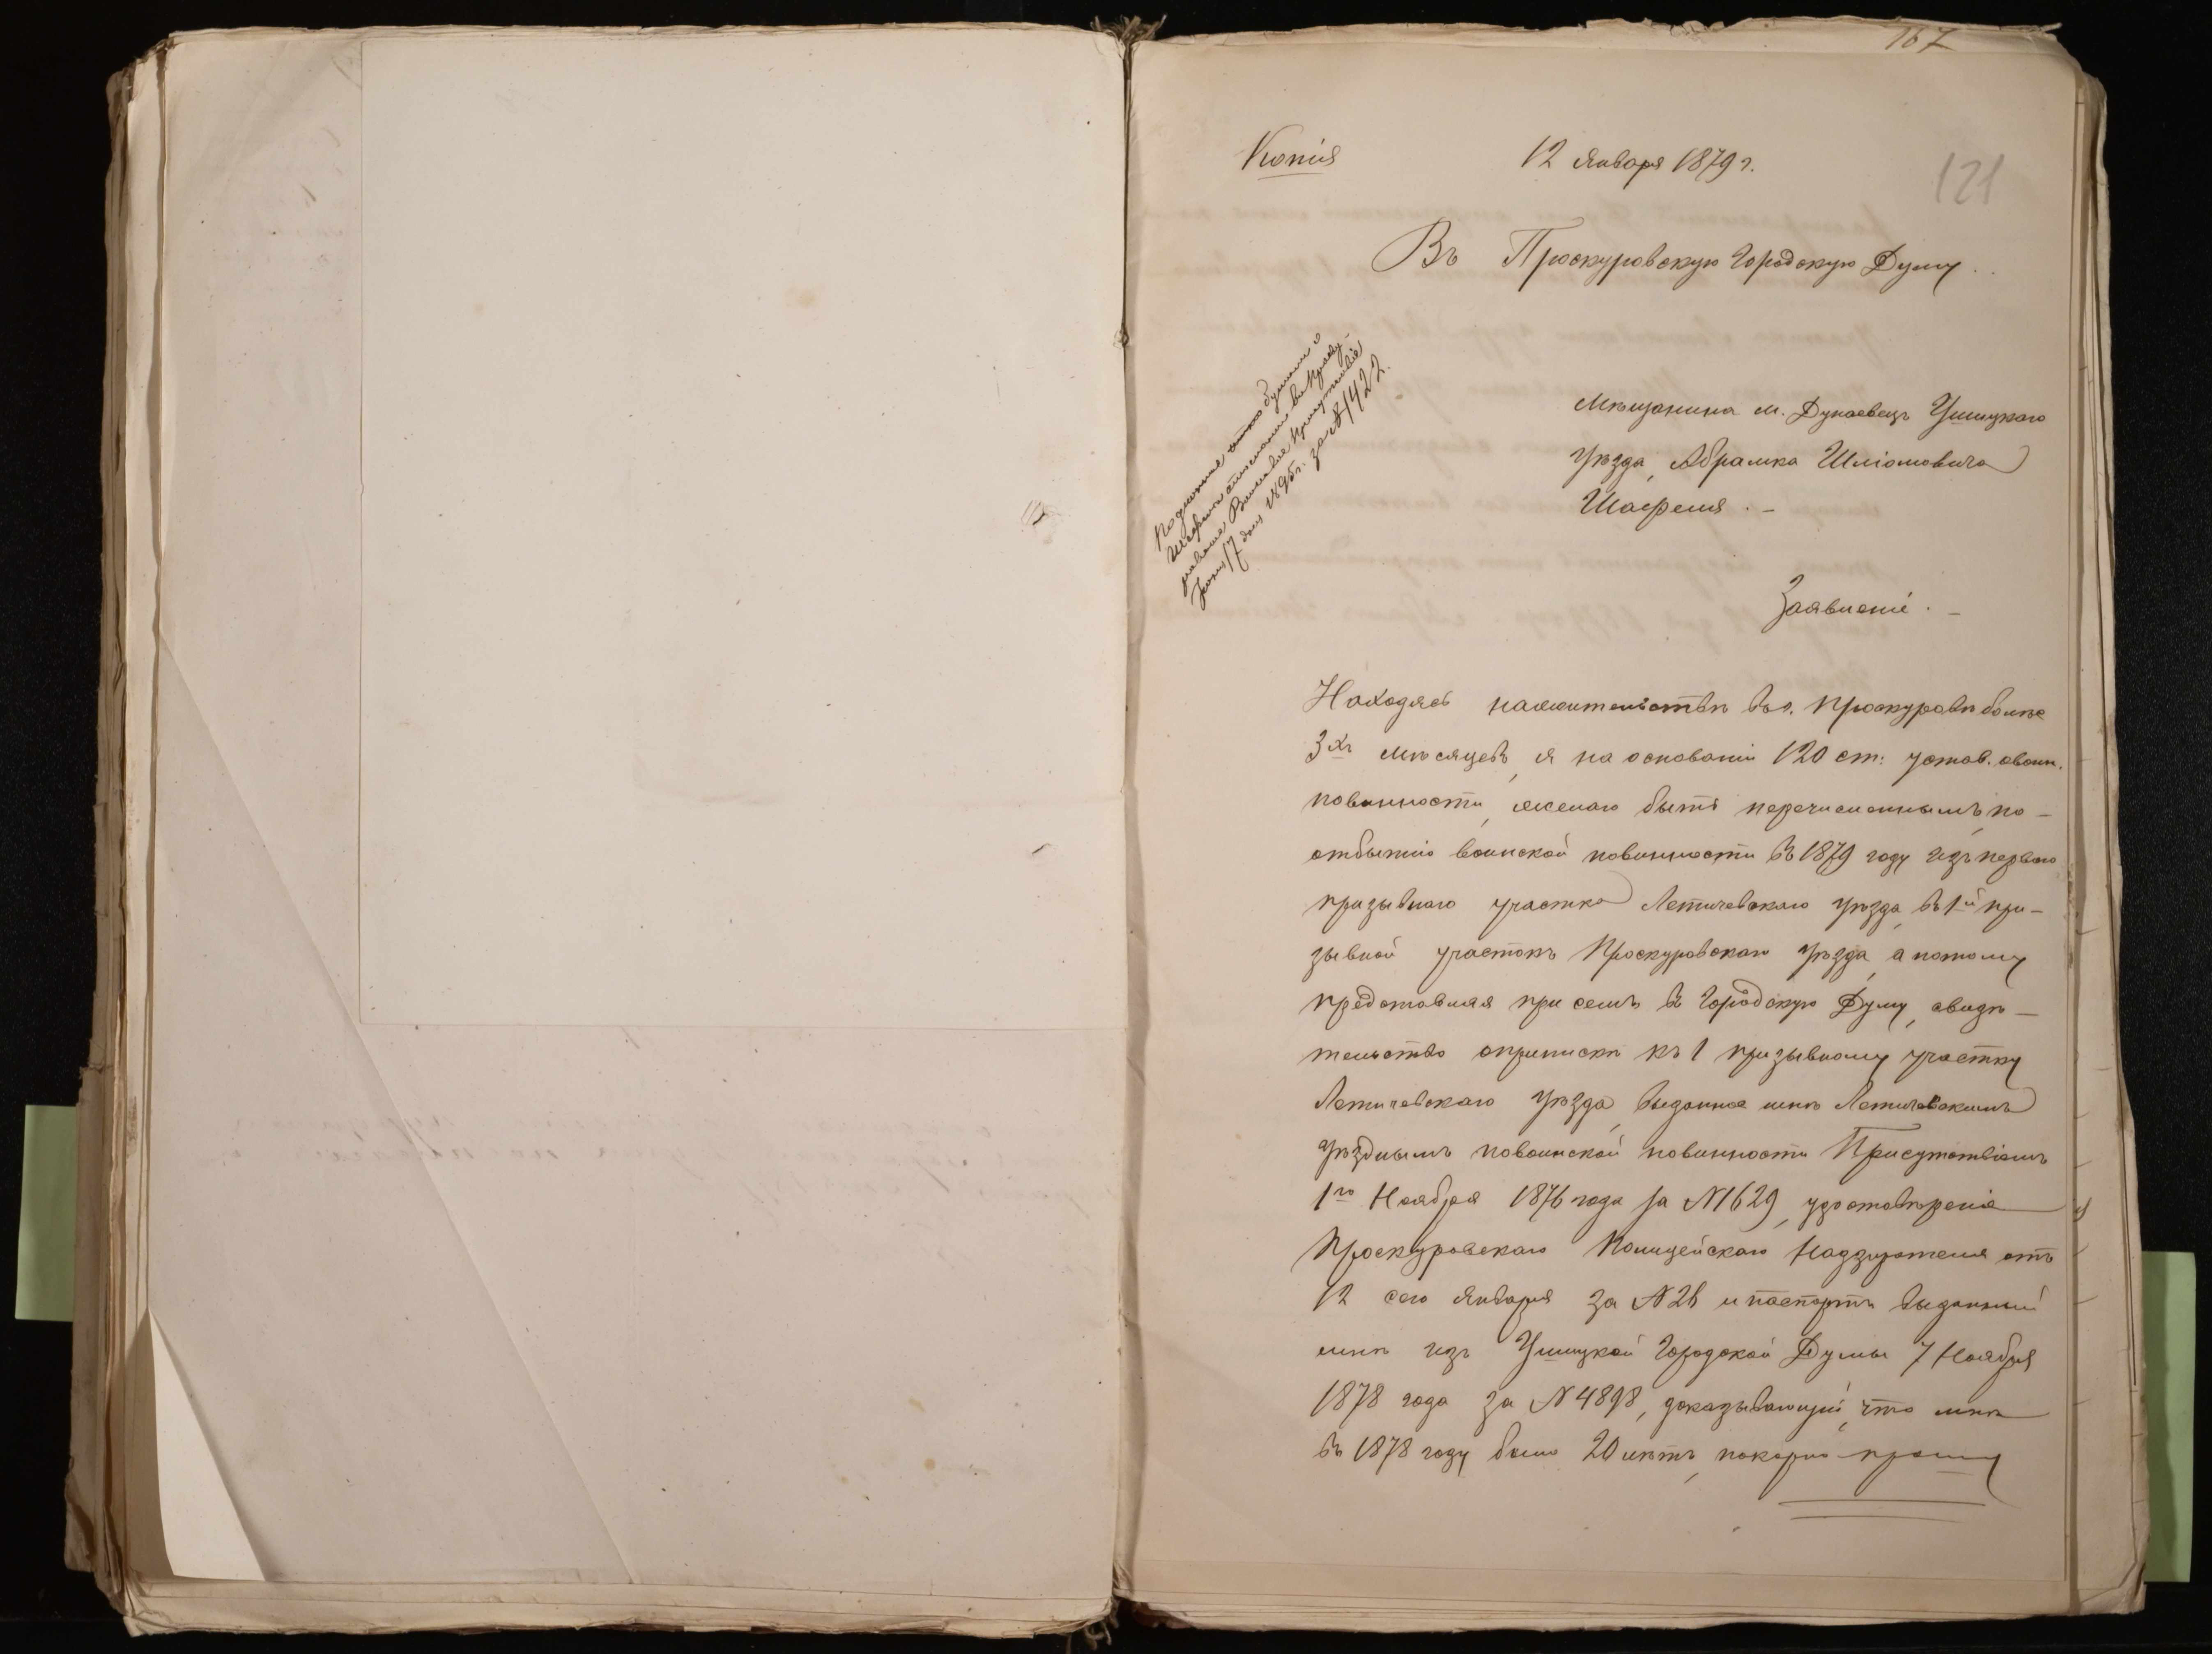 167
121
Копія
12 Января 1879 г.
Въ Проскуровскую Городскую Думу.
Подлинныя бумаги о
Шафелѣ отписаны въ Проску-
ровское Воинское Присутствіе
17 дня 1895 г. за № 1422.
Мѣщанина м. Дунаевецъ Ушицкаго
уѣзда, Абрамка Шліомовича
Шафеля. —
Заявленіе. —
Находясь нажительствѣ въ г. Проскуровѣ болѣе
3хъ мѣсяцевъ, я на основаніи 120 ст: устав. овоин.
повинности, желаю быть перечисленнымъ, по-
отбытію воинской повинности въ 1879 году изъ перваго
призывнаго участка Летичевскаго уѣзда, въ 1й при-
зывной участокъ Проскуровскаго уѣзда, а потому
представляя при семъ въ Городскую Думу, свидѣ-
тельство оприпискѣ къ 1 призывному участку
Летичевскаго уѣзда, выданное мнѣ Летичевскимъ
уѣзднымъ повоинской повинности Присутствіемъ
1го Ноября 1876 года за № 1629, удостовѣреніе
Проскуровскаго Полицейскаго Надзирателя отъ
12 сего Января за № 26 и паспортъ выданный
мнѣ изъ Ушицкой Городской Думы 7 Ноября
1878 года за № 4898, доказывающій, что мнѣ
въ 1878 году было 20 лѣтъ, покорно прошу